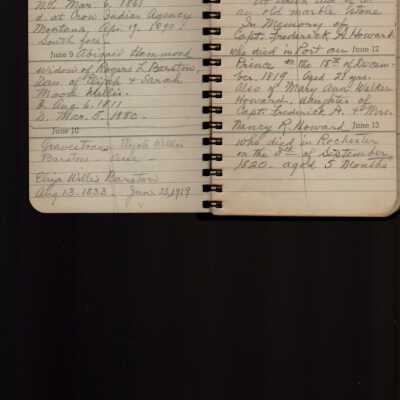 N.Y. Mar. 6. 1861
d. at Crow Indian Agency
Montana, Apr. 19. 1890
South face
June 9 Abigail Hammond
widow of Rogers L. Barstow,
Dau. of Elijah & Sarah
Mood Willis.
b. Aug 6. 1811
d. Mar. 5. 1880.
June 10
Gravestones Elijah Willis
Barstow
Eliza Willis Barstow
Aug 13. 1833 June 23, 1919
an old marble stone
In Memory of
Capt. Frederick H. Howard
who died in Port au June 12
Prince the 18th of Decem-
ber. 1819 Aged 28 yrs.
Also of Mary Ann Walker
Howard, daughter of
Capt. Frederick H. & Mrs.
Nancy R. Howard June 13
who died in Rochester
on the 8th of September
1820 - aged 5 months